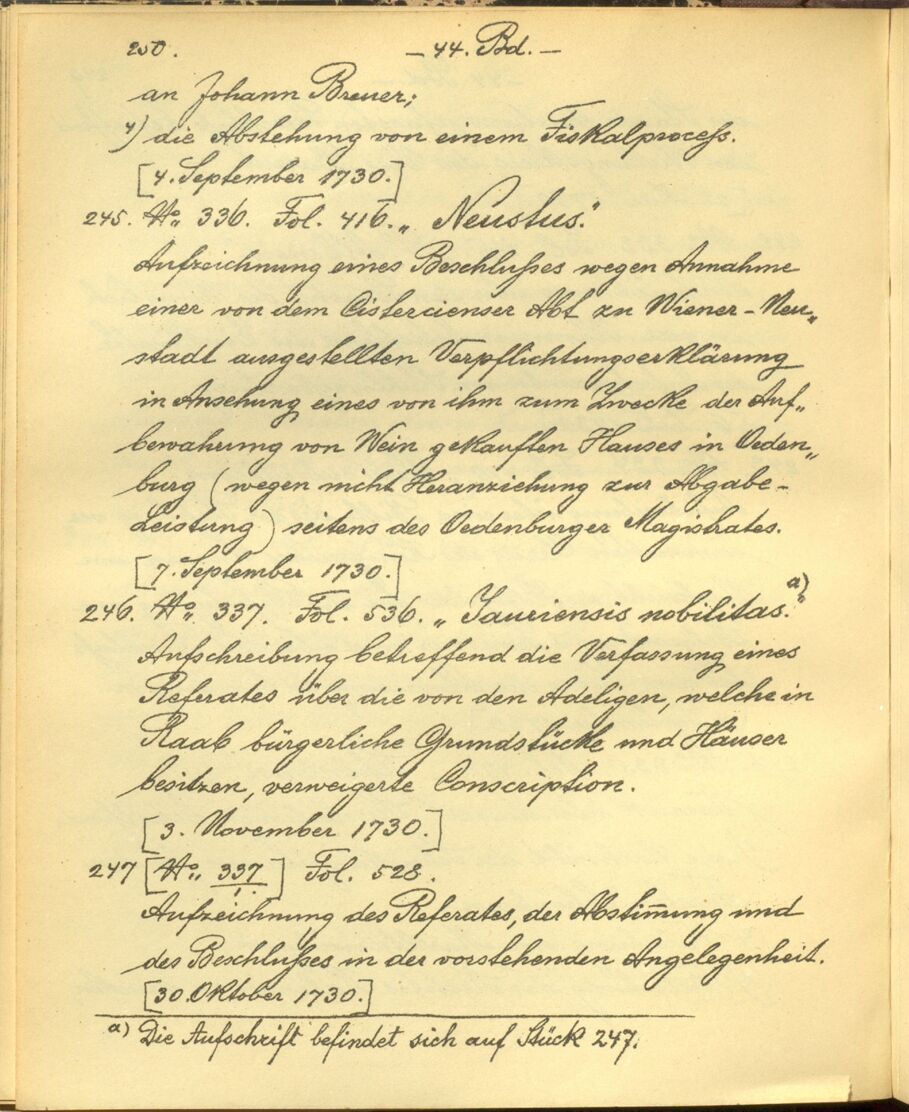 250. — 44. Bd. —
an Johann Breuer;
4) die Abstehung von einem Fiskalprocess.
[4. September 1730.]
245. No. 336. Fol. 416. „Neustus."
Aufzeichnung eines Beschlußes wegen Annahme
einer von dem Cistercienser Abt zu Wiener-Neu„
stadt ausgestellten Verpflichtungserklärung
in Ansehung eines von ihm zum Zwecke der Auf„
bewahrung von Wein gekauften Hauses in Oeden„
burg (wegen nicht Heranziehung zur Abgabe-
Leistung) seitens des Oedenburger Magistrates.
[7. September 1730.]
246. No. 337. Fol. 536. „Jauriensis nobilitas."a)
Aufschreibung betreffend die Verfassung eines
Referates über die von den Adeligen, welche in
Raab bürgerliche Grundstücke und Häuser
besitzen, verweigerte Conscription.
[3. November 1730.]
247 [No. 337/1.] Fol. 528.
Aufzeichnung des Referates, der Abstim̅ung und
des Beschlußes in der vorstehenden Angelegenheit.
[30. Oktober 1730.]
a) Die Aufschrift befindet sich auf Stück 247.